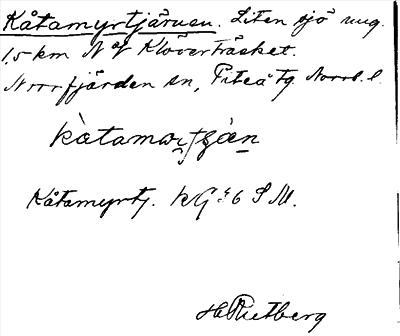 Kåtamyrtjärnen. Liten sjö ung.
1,5 km N of Klöverträsket.
Norrfjärden sn, Piteå tg Norrb. l.
kàtamo̤rtjàn
Kåtamyrtj. kG:6 S M.
H Rietberg